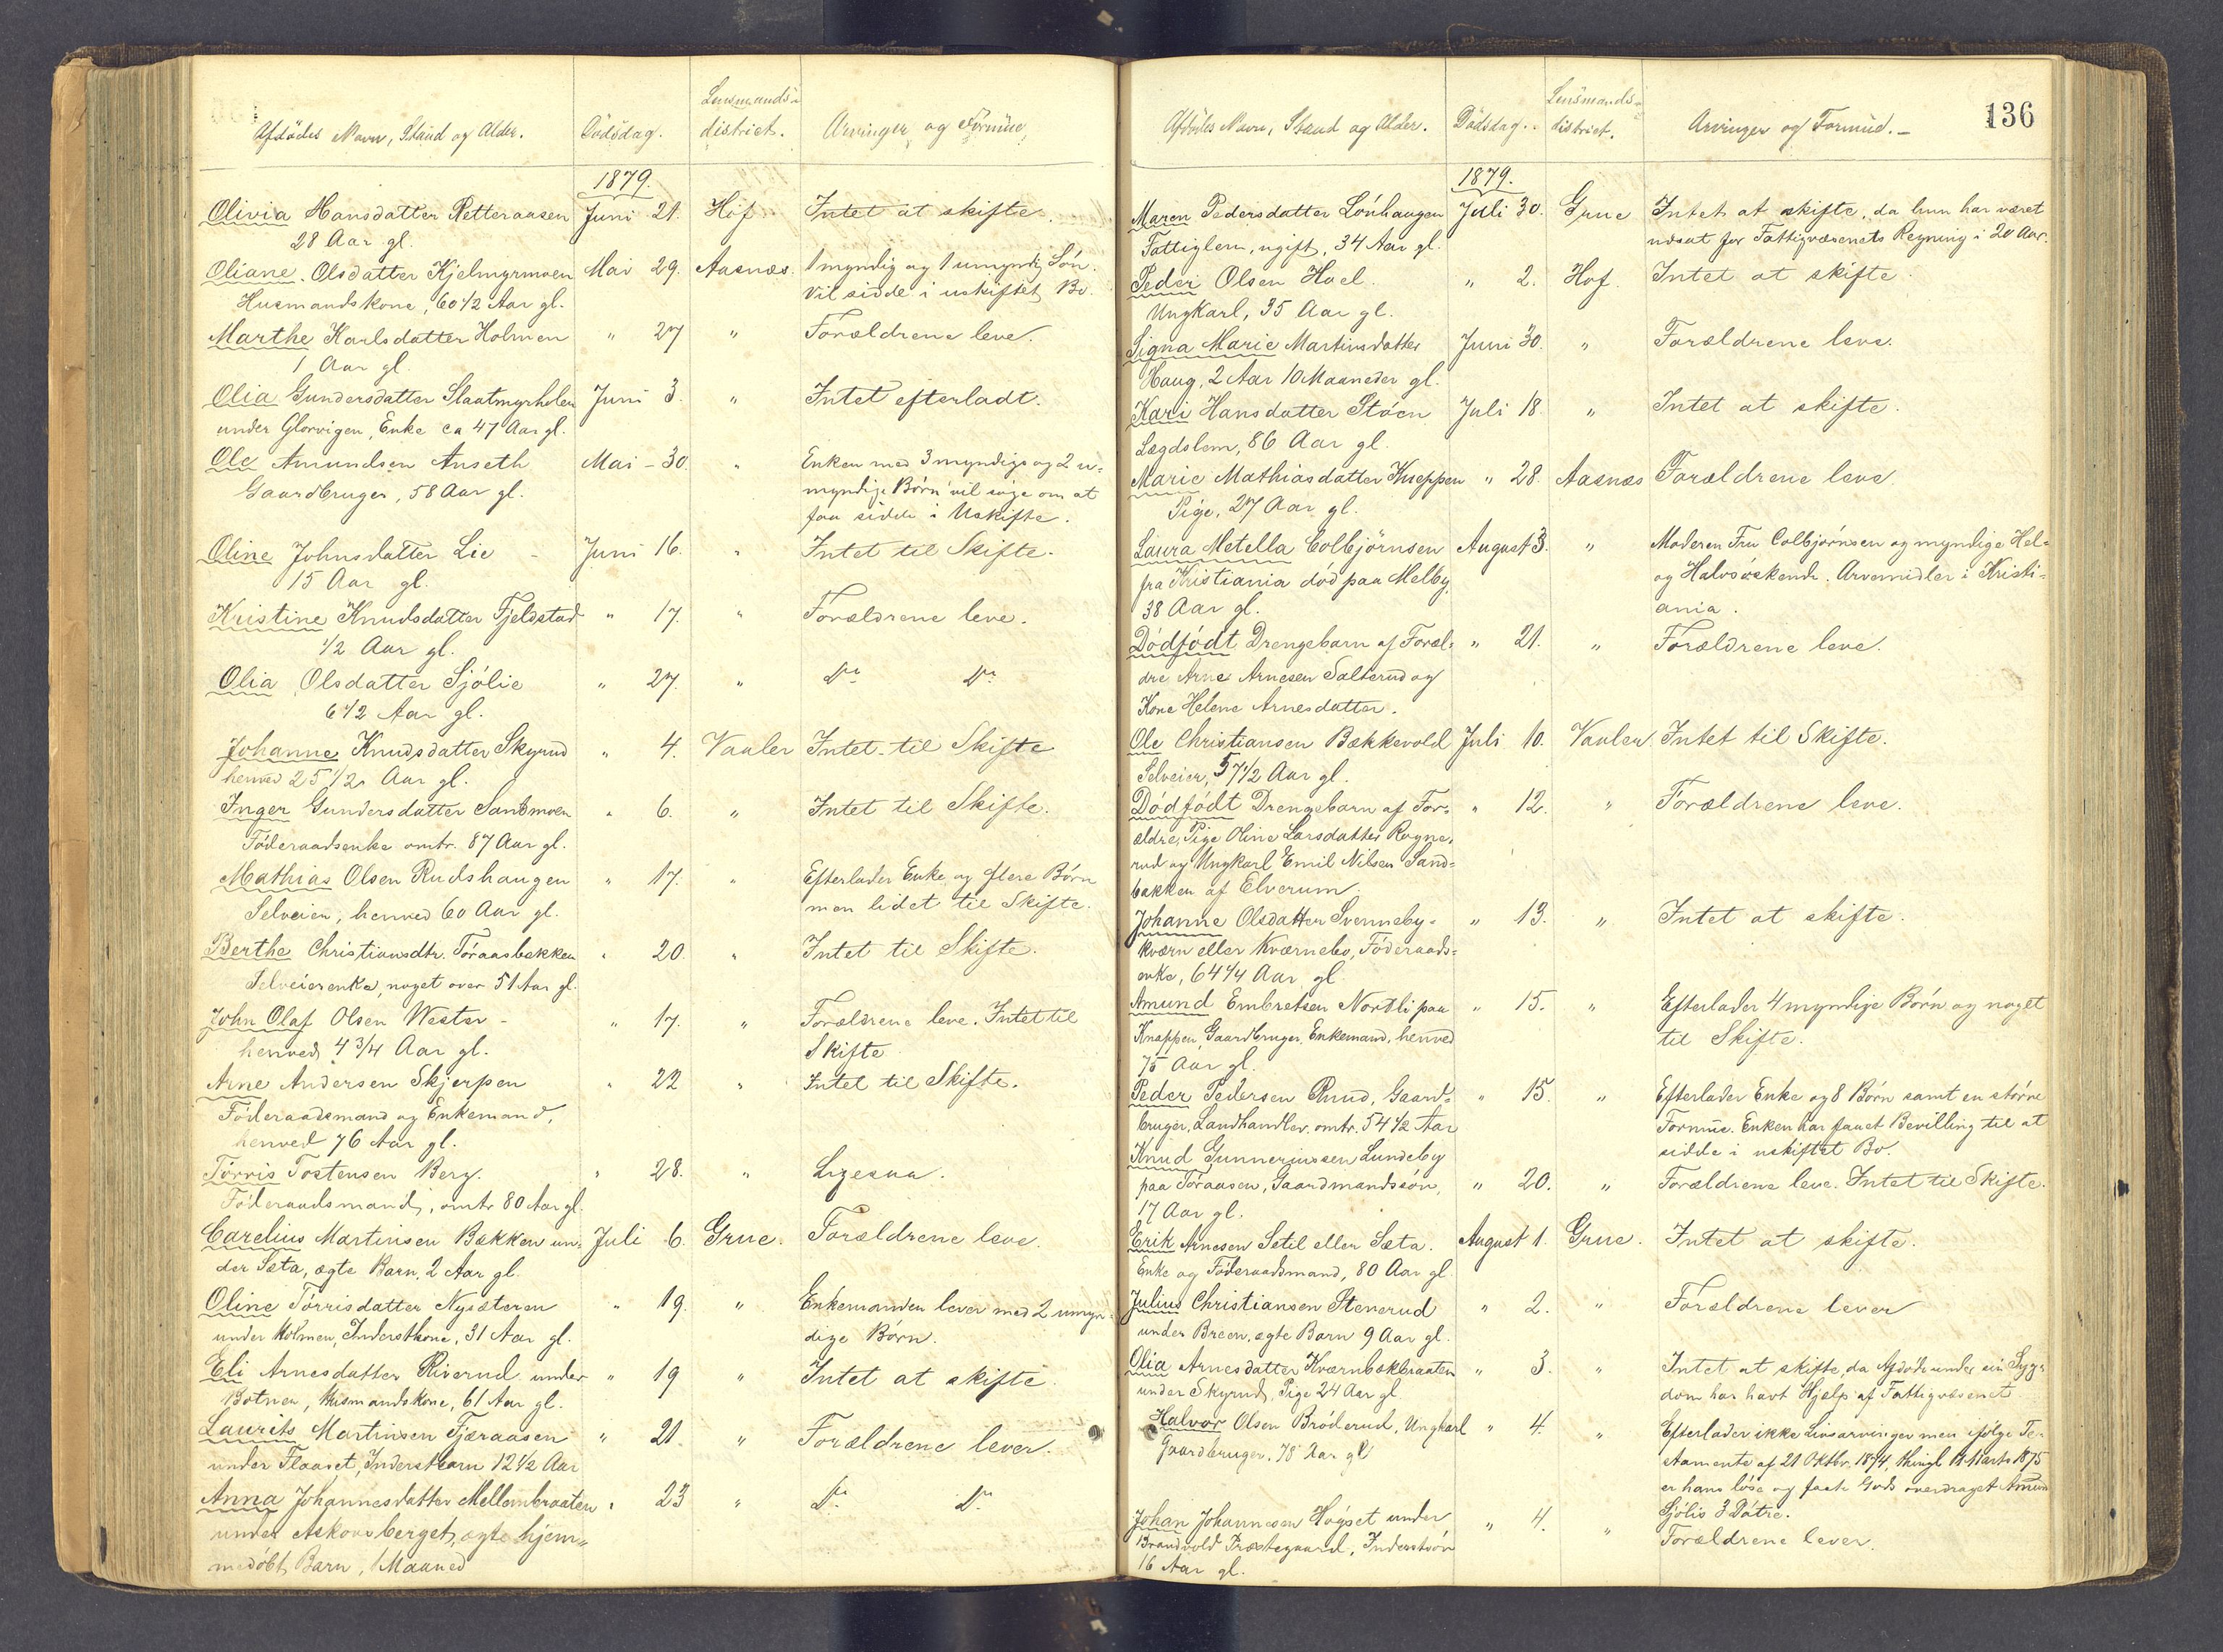 Afdödes Navn, Stand og Alder. Dödsdag. Lensmands-district. Arvinger og Formue.
1879.
Olivia Hansdatter Retteraasen Juni 21. Hof. Intet at skifte.
28 Aar gl.
Oliane Olsdatter Kjelmyrmoen Mai 29. Aasnæs. 1 myndig og 1 umyndig Sön.
Husmandskone, 60 1/2 Aar gl. Vil sidde i uskiftet Bo.
Marthe Karlsdatter Holmen " 27 " Forældrene leve.
1 Aar gl.
Olia Gundersdatter Slaatmyrholen Juni 3. " Intet efterladt.
under Glorvigen, Enke ca 47 Aar gl.
Ole Amundsen Anseth Mai - 30. " Enken med 3 myndige og 2 u-
Gaardbruger, 58 Aar gl. myndige Börn vil söge om at
faa sidde i Uskifte.
Oline Johnsdatter Lie - Juni 16. " Intet til Skifte.
15 Aar gl.
Kristine Knudsdatter Fjeldstad " 17. " Forældrene leve.
1/2 Aar gl.
Olia Olsdatter Sjölie " 27. " Do Do
6 1/2 Aar gl.
Johanne Knudsdatter Skyrud " 4. Vaaler Intet til Skifte
henved 25 1/2 Aar gl.
Inger Gundersdatter Sandmoen " 6. " Intet til Skifte.
Föderaadsenke omtr. 87 Aar gl.
Mathias Olsen Rudshaugen " 17. " Efterlader Enke og flere Börn
Selveier, henved 60 Aar gl. men lidet til Skifte.
Berthe Christiansdtr. Töraasbakken " 20. " Intet til Skifte.
Selveierenke, noget over 51 Aar gl.
John Olaf Olsen Wester - " 17. " Forældrene leve. Intet til
henved 4 3/4 Aar gl. Skifte
Arne Andersen Skjerpen " 22 " Intet til Skifte.
Föderaadsmand og Enkemand,
henved 76 Aar gl.
Törris Tostensen Berg. " 28. " Ligesaa.
Föderaadsmand, omtr 80 Aar gl.
Carelius Martinsen Bækken un- Juli 6. Grue. Forældrene leve.
der Sæta, ægte Barn, 2 Aar gl.
Oline Törrisdatter Nysæteren " 19. " Enkemanden lever med 2 umyn-
under Holmen, Inderstkone, 31 Aar gl. dige Börn.
Eli Arnesdatter Riverud under " 19 " Intet at skifte.
Botner, Husmandskone, 61 Aar gl.
Laurits Martinsen Tjæraasen " 21 " Forældrene lever.
under Flaaset, Inderstbarn 12 1/2 Aar
Anna Johannesdatter Mellembraaten " 23 " Do Do
under Askovsberget, ægte hjem-
medöbt Barn, 1 Maaned
136
Afdödes Navn, Stand og Alder. Dödsdag. Lensmands-district. Arvinger og Formue. -
1879.
Maren Pedersdatter Lönhaugen Juli 30. Grue Intet at skifte, da hun har været
Fattiglem, ugift, 34 Aar gl. udsat for Fattigvæsenets Regning i 20 Aar.
Peder Olsen Hoel. " 2. Hof. Intet at skifte.
Ungkarl, 35 Aar gl.
Signa Marie Martinsdatter Juni 30. " Forældrene leve.
Haug, 2 Aar 10 Maaneder gl.
Kari Hansdatter Stöen Juli 18. " Intet at skifte.
Lægdslem, 86 Aar gl.
Marie Mathiasdatter Knappen " 28. Aasnæs Forældrene leve.
Pige, 27 Aar gl.
Laura Metella Colbjörnsen August 3. " Moderen Fru Colbjörnsen og myndige Hel-
fra Kristiania död paa Melby, og Halvsöskende. Arvemidler i Kristi-
38 Aar gl. ania.
Dödfödt Drengebarn af Foræl- " 21. " Forældrene leve.
dre Arne Arnesen Salterud og
Kone Helene Arnesdatter.
Ole Christiansen Bækkevold Juli 10. Vaaler Intet til Skifte.
Selveier, 57 1/2 Aar gl.
Dödfödt Drengebarn af For- " 12. " Forældrene leve.
ældre, Pige Oline Larsdatter Rogne-
rud og Ungkarl Emil Nilsen Sand-
bakken af Elverum.
Johanne Olsdatter Svenneby- " 13. " Intet at skifte.
kværn eller Kværnebo, Föderaads-
enke, 64 1/4 Aar gl.
Amund Embretsen Nordli paa " 15. " Efterlader 4 myndige Börn og noget
Knappen, Gaardbruger, Enkemand, henved til Skifte.
75 Aar gl.
Peder Pedersen Ruud, Gaard- " 15. " Efterlader Enke og 8 Börn samt en större
bruger, Landhandler, omtr. 54 1/2 Aar Formue. Enken har faaet Bevilling til at
sidde i uskiftet Bo.
Knud Gunneriussen Lundeby
paa Töraasen, Gaardmandssön, " 20. " Forældrene leve. Intet til Skifte.
17 Aar gl.
Erik Arnesen Setil eller Sæta. August 1. Grue. Intet at skifte.
Enke og Föderaadsmand, 80 Aar gl.
Julius Christiansen Stenerud " 2. " Forældrene lever
under Breen, ægte Barn 9 Aar gl.
Olia Arnesdatter Kværnbækbraaten " 3. " Intet at skifte, da Afdöde under sin Syg-
under Skyrud, Pige 24 Aar gl. dom har havt Hjælp af Fattigvæsenet
Halvor Olsen Bröderud, Ungkarl " 4. " Efterlader ikke Livsarvinger men ifölge Te-
Gaardbruger, 78 Aar gl stamente af 21 Oktbr. 1874, thingl. 11 Marts 1875
er hans löse og faste Gods overdraget Amund
Sjölis 3 Dötre.
Johan Johannesen Högset under " 4. " Forældrene lever.
Brandvold Præstegaard, Inderstsön
16 Aar gl.